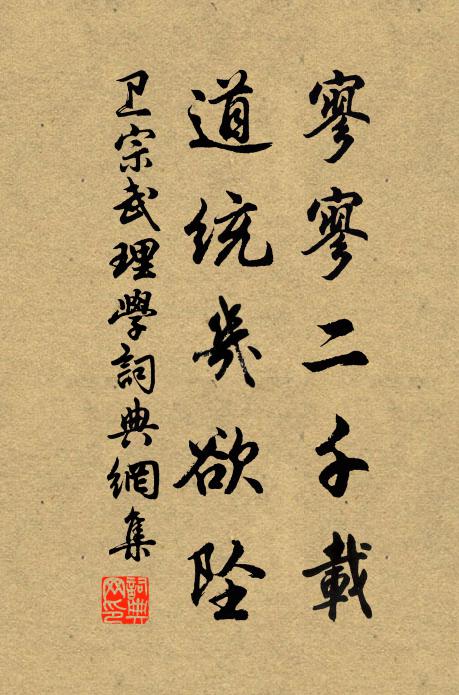 寥寥二千載
道統幾欲墜
卫宗武理學詞典網集
詞典网印